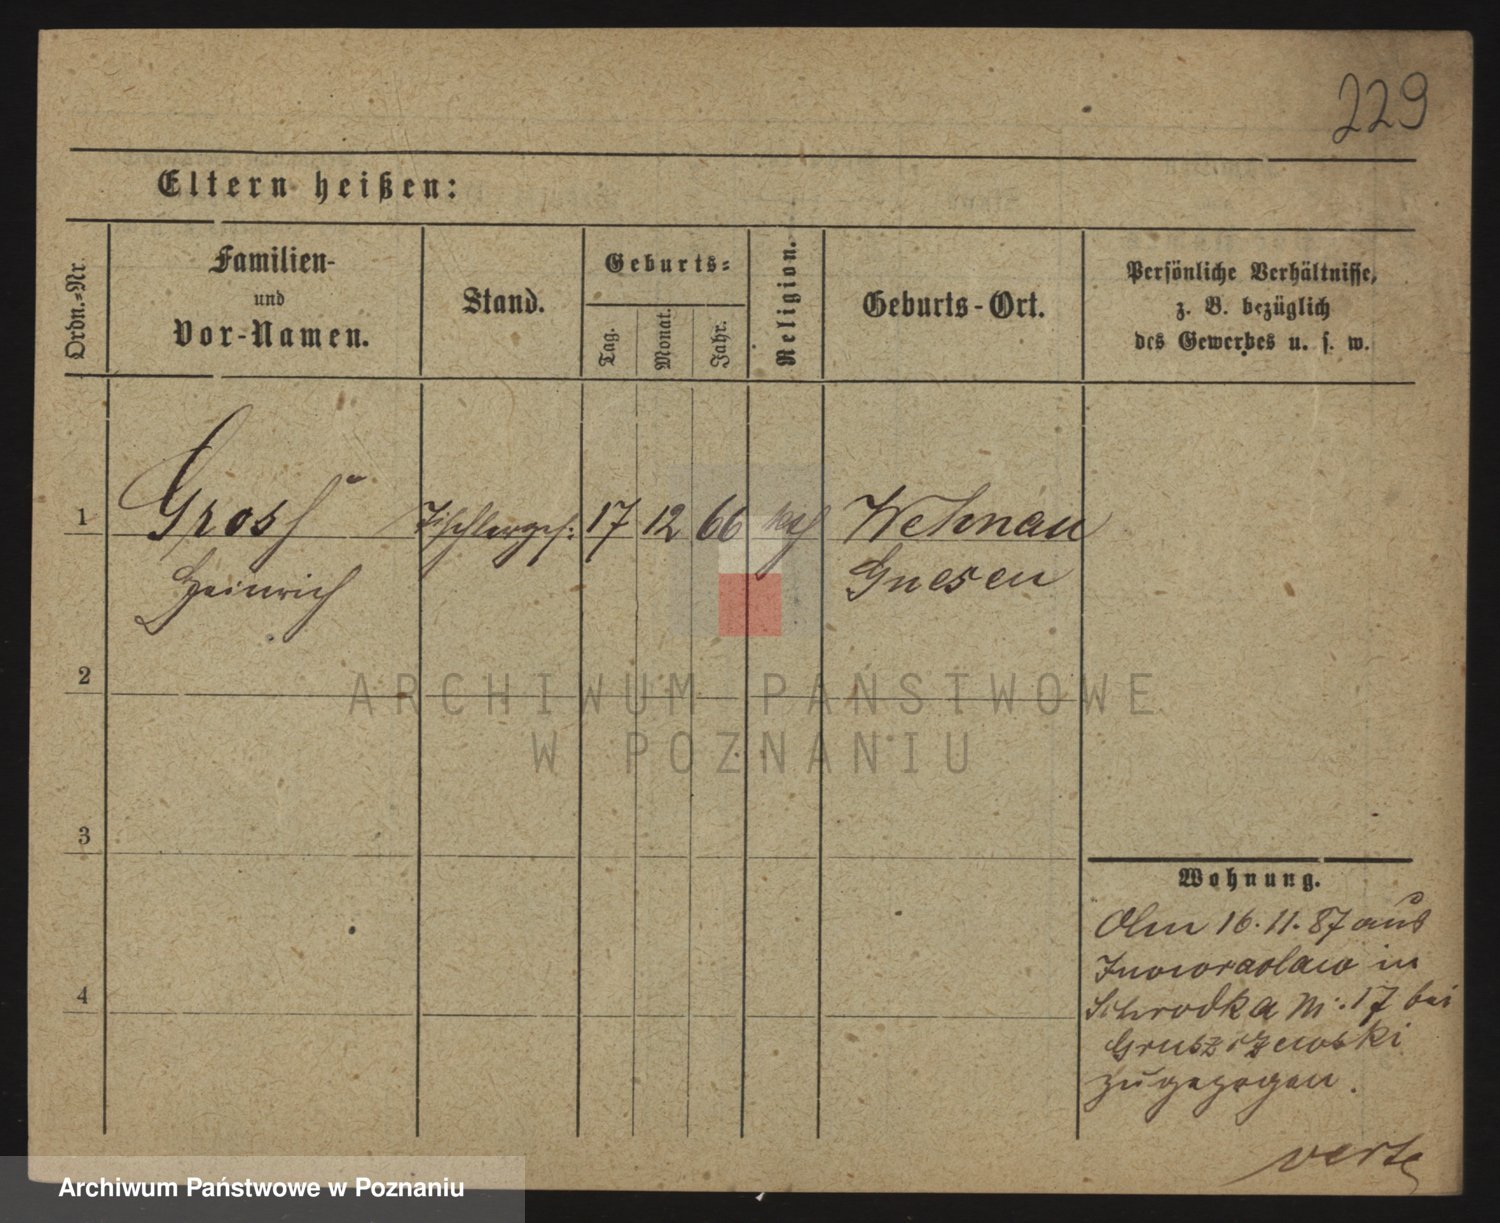 229
Eltern heißen:
Ordn.-Nr.
Familien-
und
Vor-Namen.
Stand.
Geburts-
Tag.
Monat.
Jahr.
Religion.
Geburts-Ort.
Persönliche Verhältnisse,
z. B. bezüglich
des Gewerbes u. s. w.
1 Gross Tischlerges: 17 12 66 kath Welnau
Heinrich Gnesen
2
3
4
ARCHIWUM PAŃSTWOWE
W POZNANIU
Wohnung.
Am 16.11.87 aus
Inowrazlaw in
Schrodka Nr. 17 bei
zugezogen.
verte
Archiwum Państwowe w Poznaniu